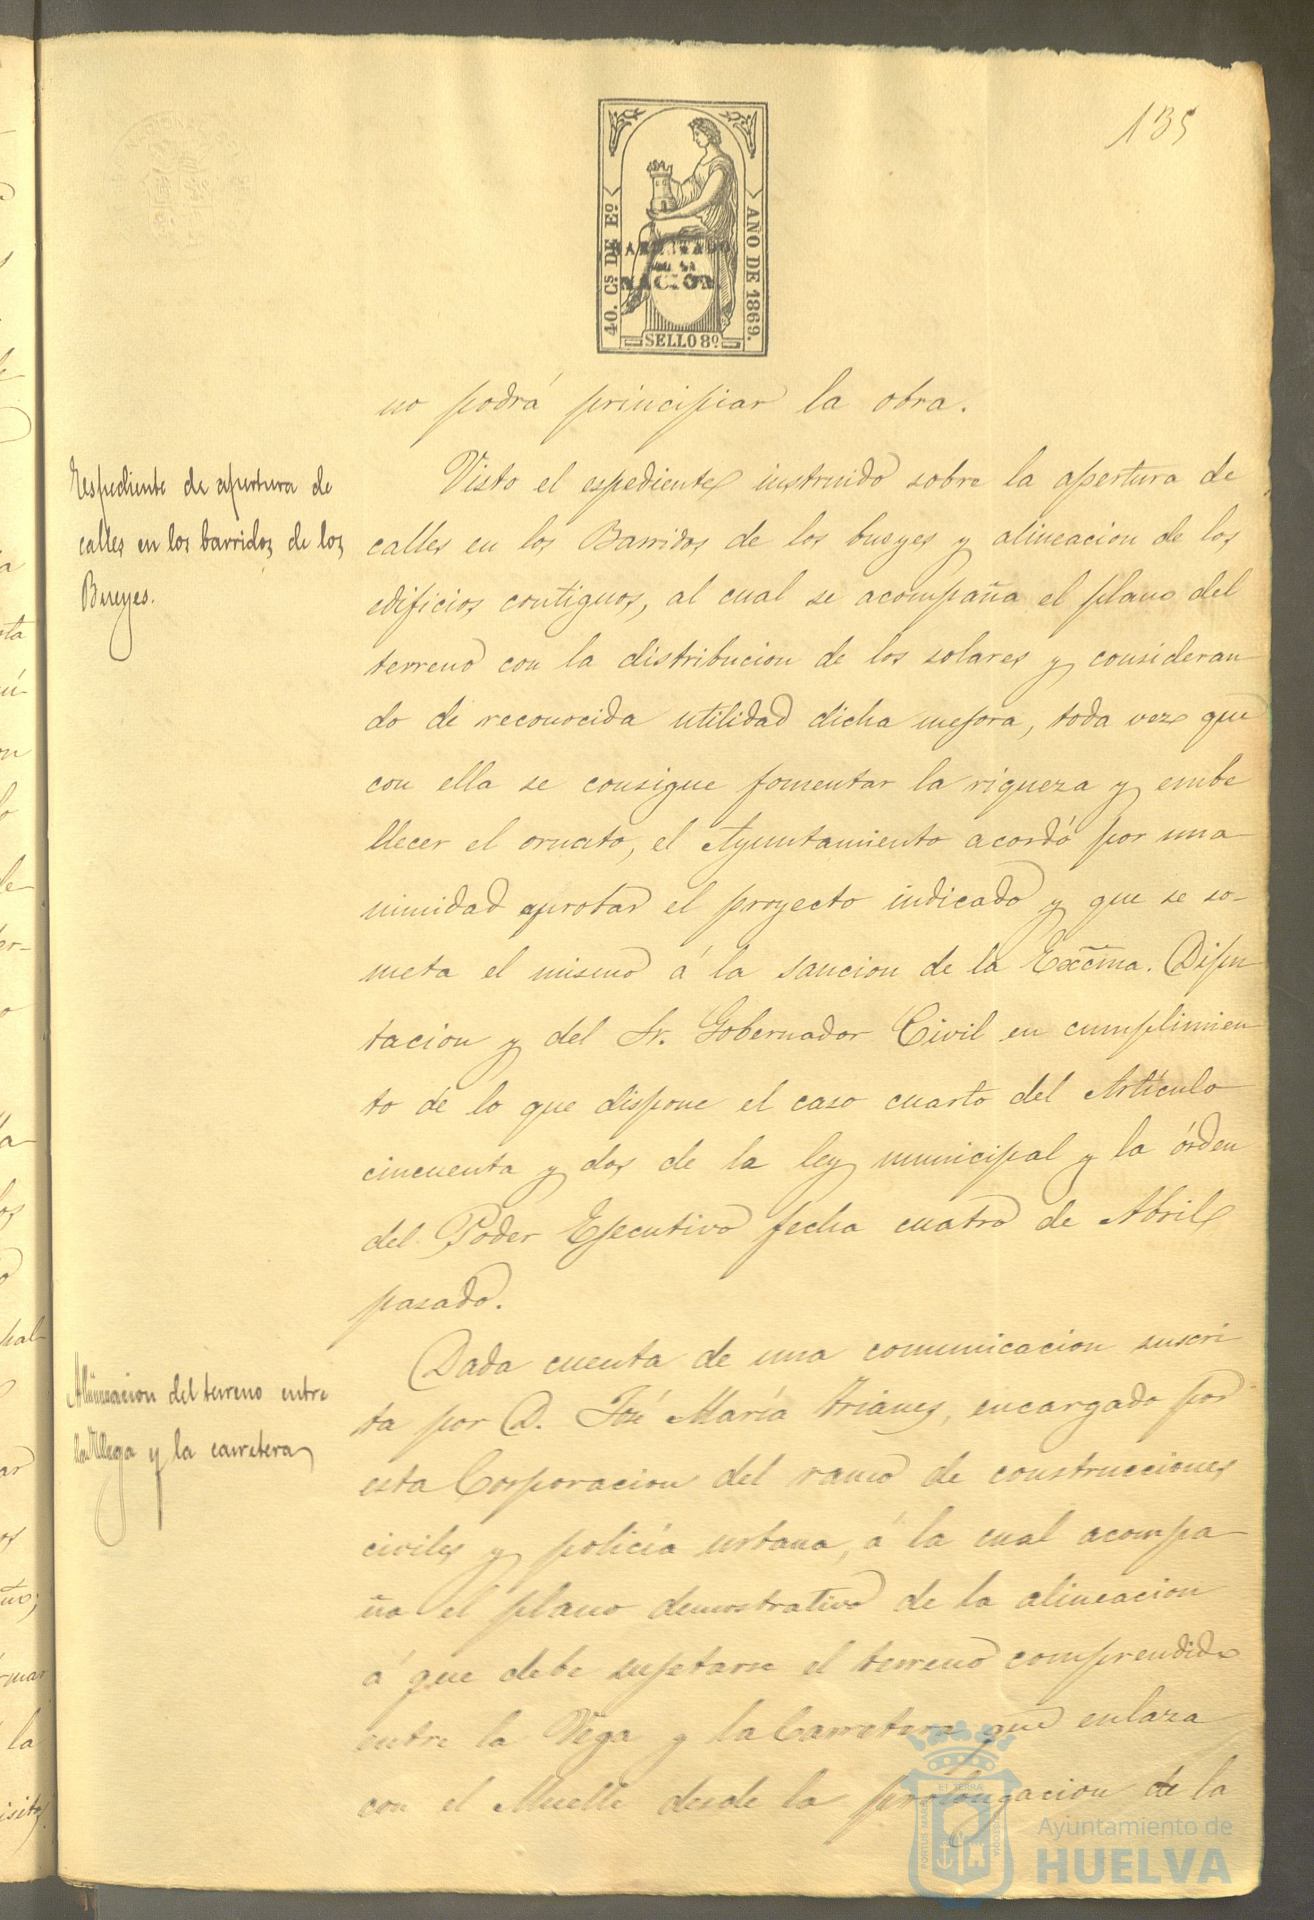 135
40. Cs DE Eo.
AÑO DE 1869.
HABILITADO
POR LA
NACION.
SELLO 8º
no podrá principiar la obra.
Espediente de apertura de
calles en los barridos de los
Bueyes.
Visto el espediente instruido sobre la apertura de
calles en los Barridos de los bueyes y alineacion de los
edificios contiguos, al cual se acompaña el plano del
terreno con la distribucion de los solares y consideran
do de reconocida utilidad dicha mejora, toda vez que
con ella se consigue fomentar la riqueza y embe
llecer el ornato, el Ayuntamiento acordó por una
nimidad aprobar el proyecto indicado y que se so-
meta el mismo á la sancion de la Excma. Dipu
tacion y del Sr. Gobernador Civil en cumplimien
to de lo que dispone el caso cuarto del Artículo
cincuenta y dos de la ley municipal y la órden
del Poder Ejecutivo fecha cuatro de Abril
pasado.
Alineacion del terreno entre
la Vega y la carretera
Dada cuenta de una comunicacion suscri
ta por D. José María Trianes, encargado por
esta Corporacion del ramo de construcciones
civiles y policía urbana, á la cual acompa
ña el plano demostrativo de la alineacion
á que debe sujetarse el terreno comprendido
entre la Vega y la Carretera que enlaza
con el Muelle desde la prolongacion de la
Ayuntamiento de
HUELVA